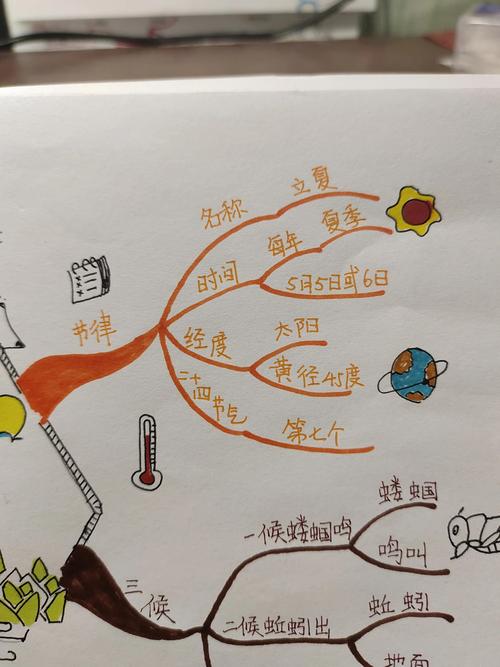 节律
名称
立夏
时间
每年
夏季
5月5日或6日
经度
太阳
黄径45度
二十四节气
第七个
三候
一候蝼蝈鸣
蝼蝈
鸣叫
二候蚯蚓出
蚯蚓
地面